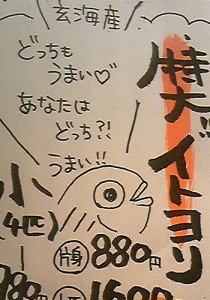 玄海産
特大イトヨリ!!
どっちも
うまい♡
あなたは
どっち?!
うまい!!
小
(4匹)
片身 880円